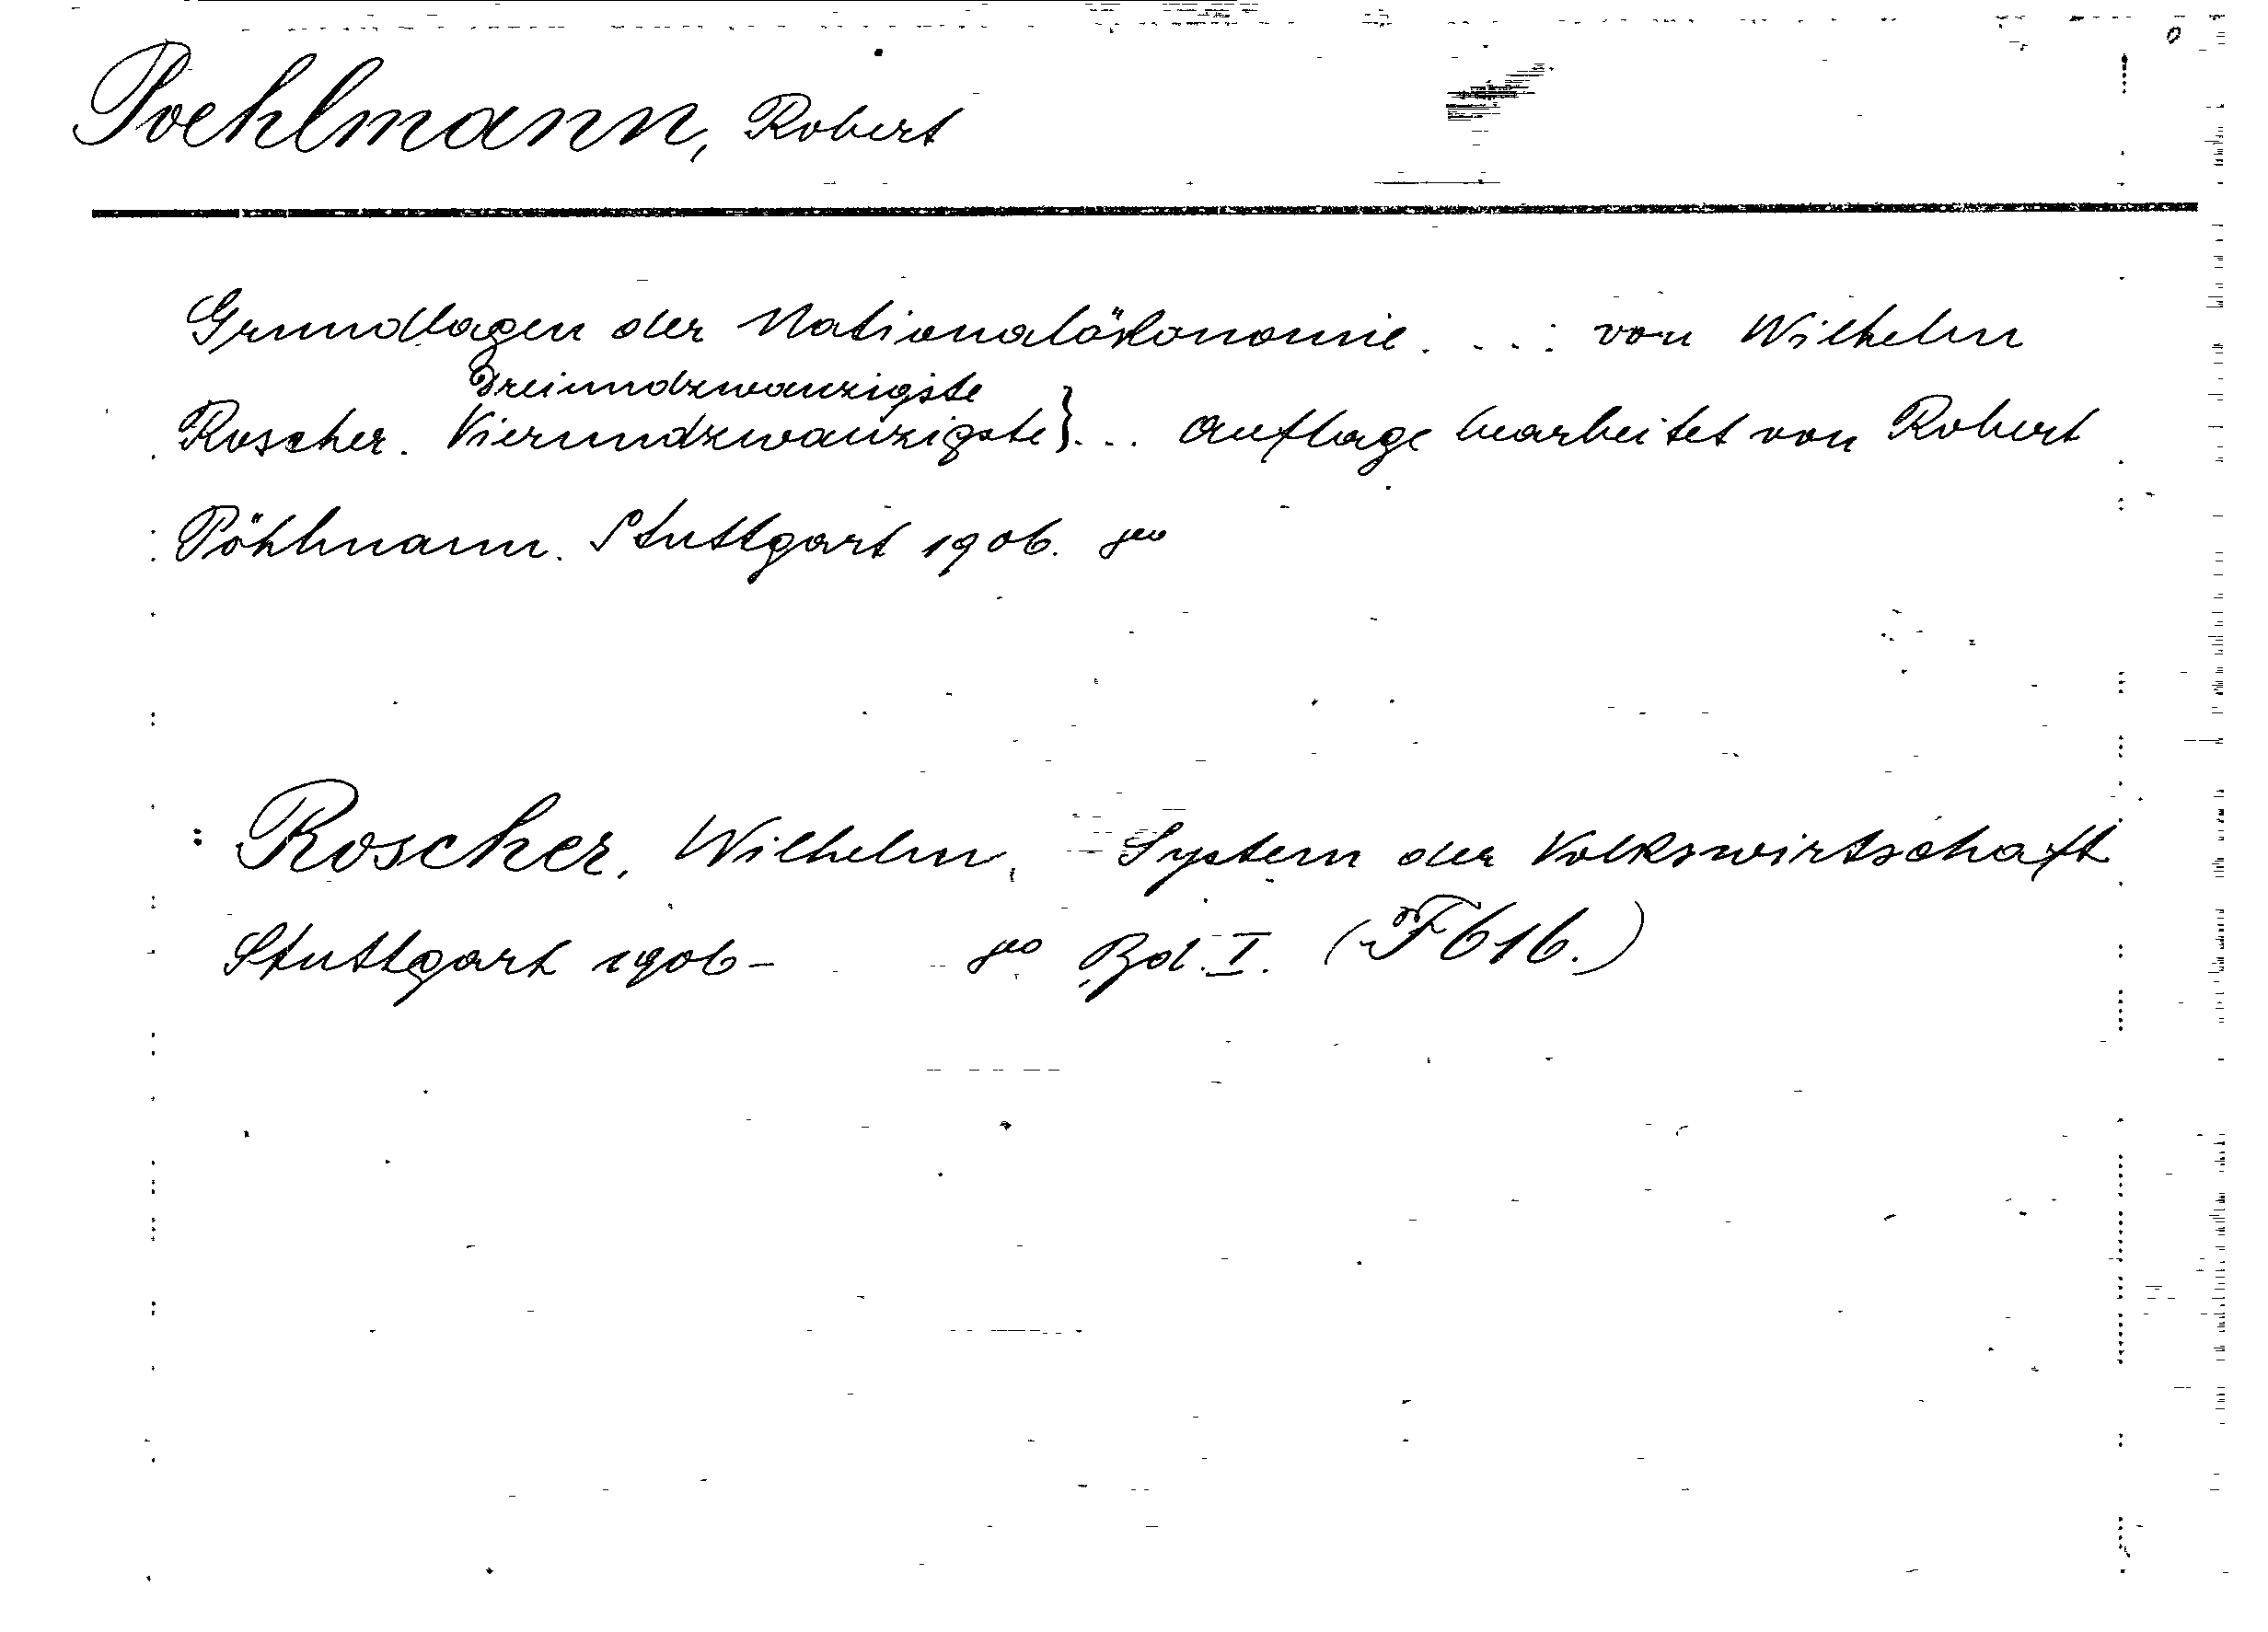 Poehlmann, Robert
Grundlagen der Nationalökonomie. ... von Wilhelm
Dreiundzwanzigste
Roscher. Vierundzwanzigste}... Auflage bearbeitet von Robert
Pöhlmann. Stuttgart 1906. 8vo
: Roscher, Wilhelm, System der Volkswirtschaft
Stuttgart 1906- 8vo Bd. I. (F616.)